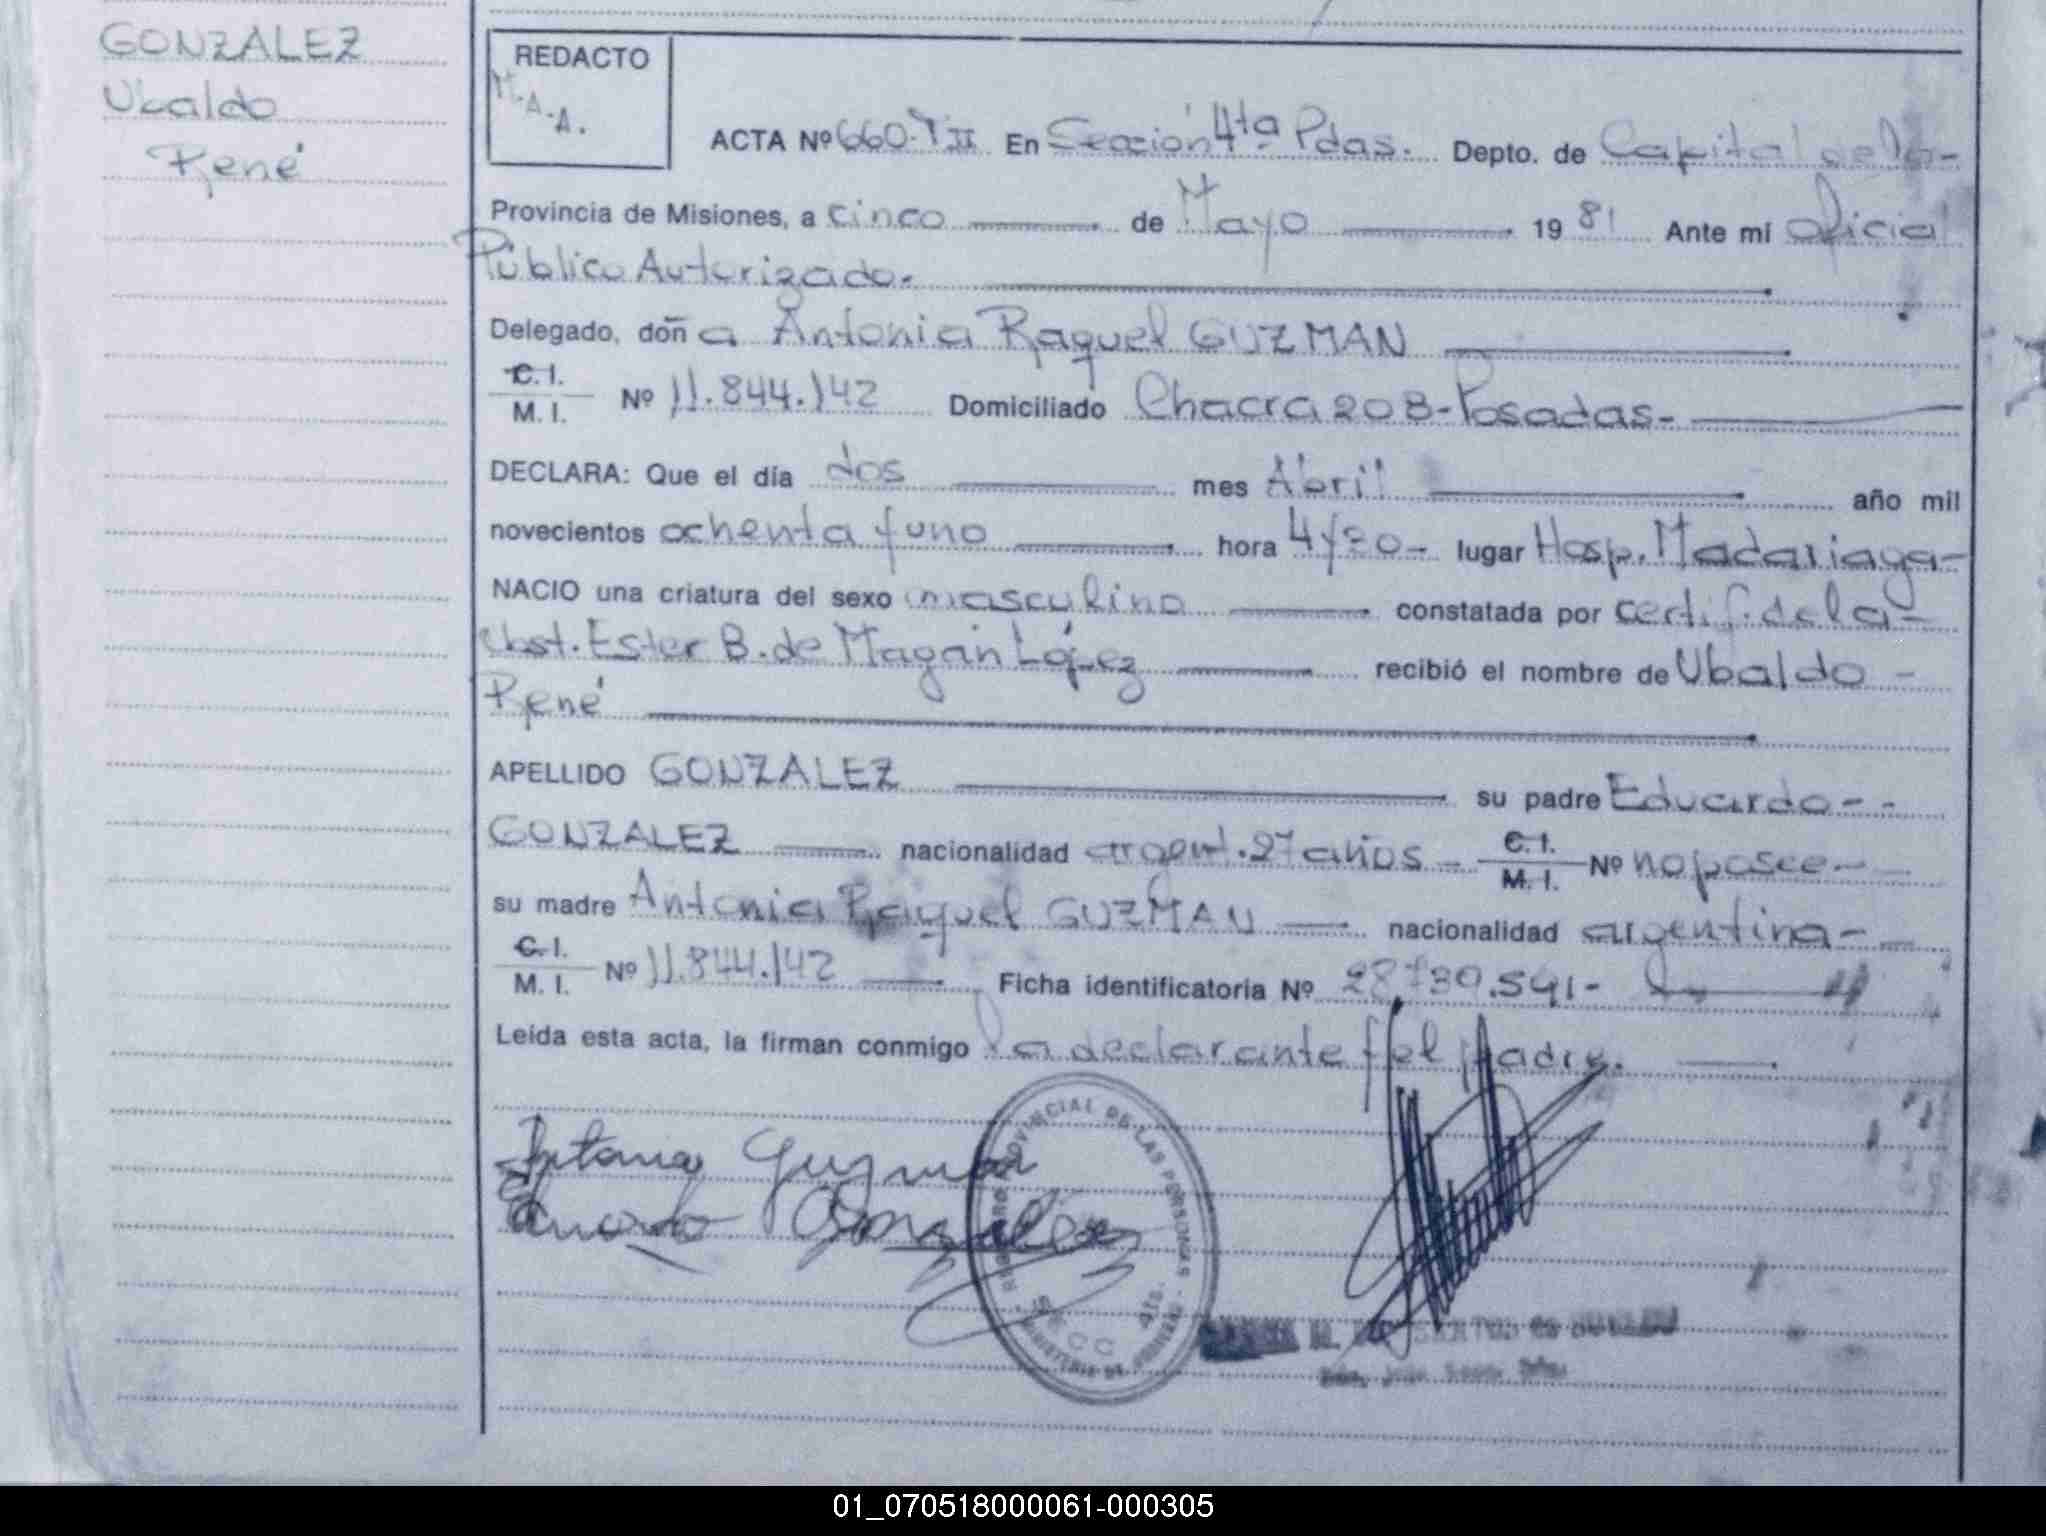 GONZALEZ
Ubaldo
René
REDACTO
M.A.A.
ACTA Nº 660-T II En Sección 4ta Pdas. Depto. de Capital de la-
Provincia de Misiones, a cinco de Mayo 1981 Ante mí Oficial
Público Autorizado.
Delegado, doña Antonia Raquel GUZMAN
C. I.
M. I. Nº 11.844.142 Domiciliado Chacra 208-Posadas-
DECLARA: Que el día dos mes Abril año mil
novecientos ochenta y uno hora 4y20- lugar Hosp. Madariaga-
NACIO una criatura del sexo masculino constatada por certif. de la-
Obst. Ester B. de Magán López recibió el nombre de Ubaldo -
René
APELLIDO GONZALEZ su padre Eduardo--
GONZALEZ nacionalidad argent. 27 años - C. I.
M. I. Nº no posee-
su madre Antonia Raquel GUZMAN nacionalidad argentina-
C. I.
M. I. Nº 11.844.142 Ficha identificatoria Nº 28.730.591-
Leída esta acta, la firman conmigo la declarante y el padre.
Antonia Guzman
Eduardo Gonzalez
REGISTRO PROVINCIAL DE LAS PERSONAS
SECC 4ta.
01_070518000061-000305